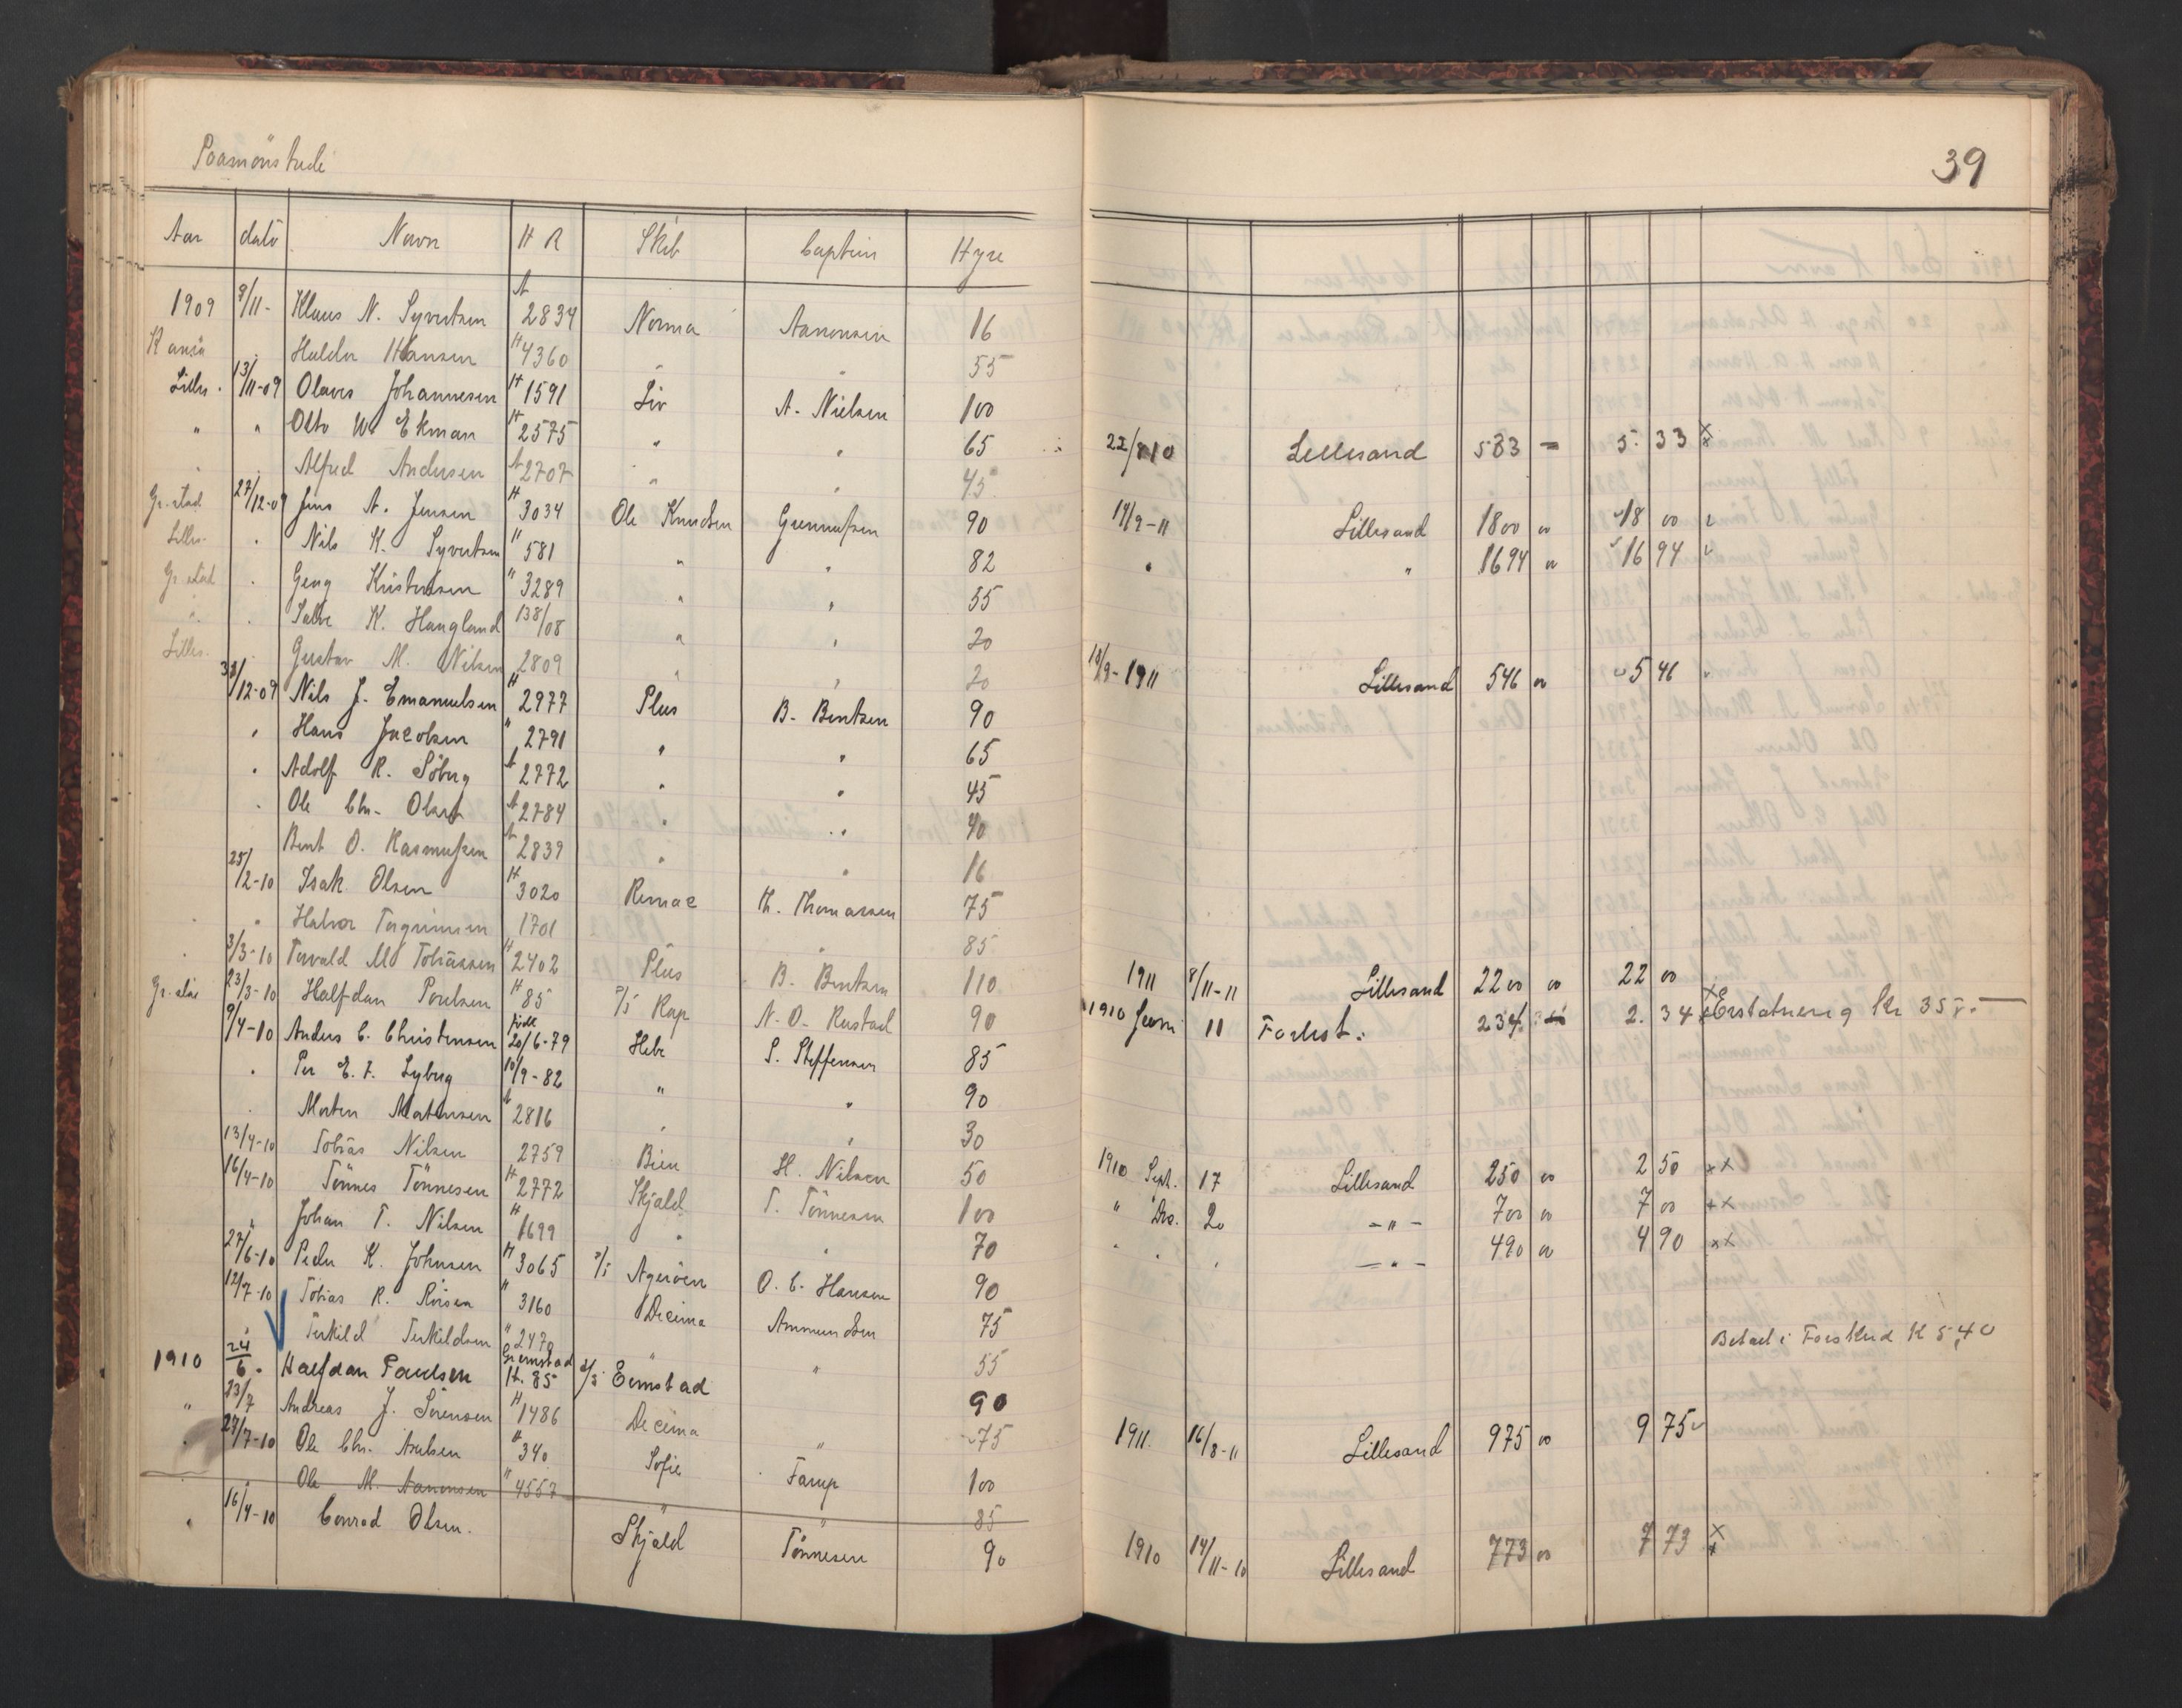 Paamönstrede
39
Aar dato Navn H R Skib Captein Hyre
1909 9/11- Klaus N. Syvertsen A 2834 Norma Aanonsen 16
Haldor Hansen H 4360 " " 55
Lilles. 13/11-09 Olaves Johannesen H 1591 Liv A. Nielsen 100
" " Otto W. Ekman H 2575 " " 65 22/8 10 Lillesand 533 = 5 33 x
Alfred Andersen A 2707 " " 45
Gr.stad 27/12-09 Jens A. Jensen H 3034 Ole Knudsen Gunnufsen 90 14/9-11 Lillesand 1800 00 18 00
Lilles. " Nils K. Syvertsen " 581 " " 82 " " 1694 00 16 94
Gr. stad " Georg Kristensen " 3289 " " 55
" Salve K. Haugland 138/08 " " 20
Lilles. Gustav M. Nilsen 2809 " " 20 18/9-1911 Lillesand 546 00 5 46
31/12-09 Nils J. Emanuelsen H 2977 Plus B. Bentsen 90
" Hans Jacobsen " 2791 " " 65
" Adolf R. Söberg A 2772 " " 45
" Ole Chr. Olsen A 2784 " " 40
Bent O. Rasmufsen A 2839 " " 16
25/2-10 Isak Olsen H 3020 Remae Th. Thomassen 75
" Halvor Tergrimsen 1701 " 85
3/3-10 Torvald M Tobiassen H 2402 Plus B. Bentsen 110 1911 8/11-11 Lillesand 2200 00 22 00
Gr. stad 23/3-10 Halfdan Poulsen H 85 S/S Rap N. O. Rustad 90 1910 Juni 11 Forlist. 234 2. 34 Erstatnerig Kr 35
9/4-10 Anders C. Christensen födt 20/6-79 Hebe S. Steffensen 85
" Per E. F. Lyberg 10/9-82 " " 90
Morten Mortensen A 2816 " " 30
13/4-10 Tobias Nilsen 2759 Bien H. Nilsen 50 1910 Sept. 17 Lillesand 250 00 2 50 xx
16/4-10 Tönnes Tönnesen H 2772 Skjald T. Tönnesen 100 " Des. 20 - " - 700 00 7 00 xx
" Johan T. Nilsen H 1699 " " 70 " " " - " - 490 00 4 90 xx
27/6-10 Peder K. Johnsen H 3065 S/S Ageröen O. C. Hansen 90
12/7-10 Tobias R. Roisen " 3160 Decima Ammundsen 75
" Terkild Terkildsen " 2470 " " 55 Betaelt i Forskud K 5,40
1910 24/6 - Halfdan Paulsen Grimstad H. 85 S/S Eimstad 90
" 23/7 Andreas J. Sörensen H 1486 Decima " 75 1911. 16/8-11 Lillesand 975 00 9 75
" 27/7-10 Ole Chr. Axelsen H 340 Sofie Farup 100
Ole M. Aanonsen " 4557 " " 85
" 16/4-10 Conrad Olsen. Skjald Tönnesen 90 1910 14/11-10 Lillesand 773 00 7 73 x